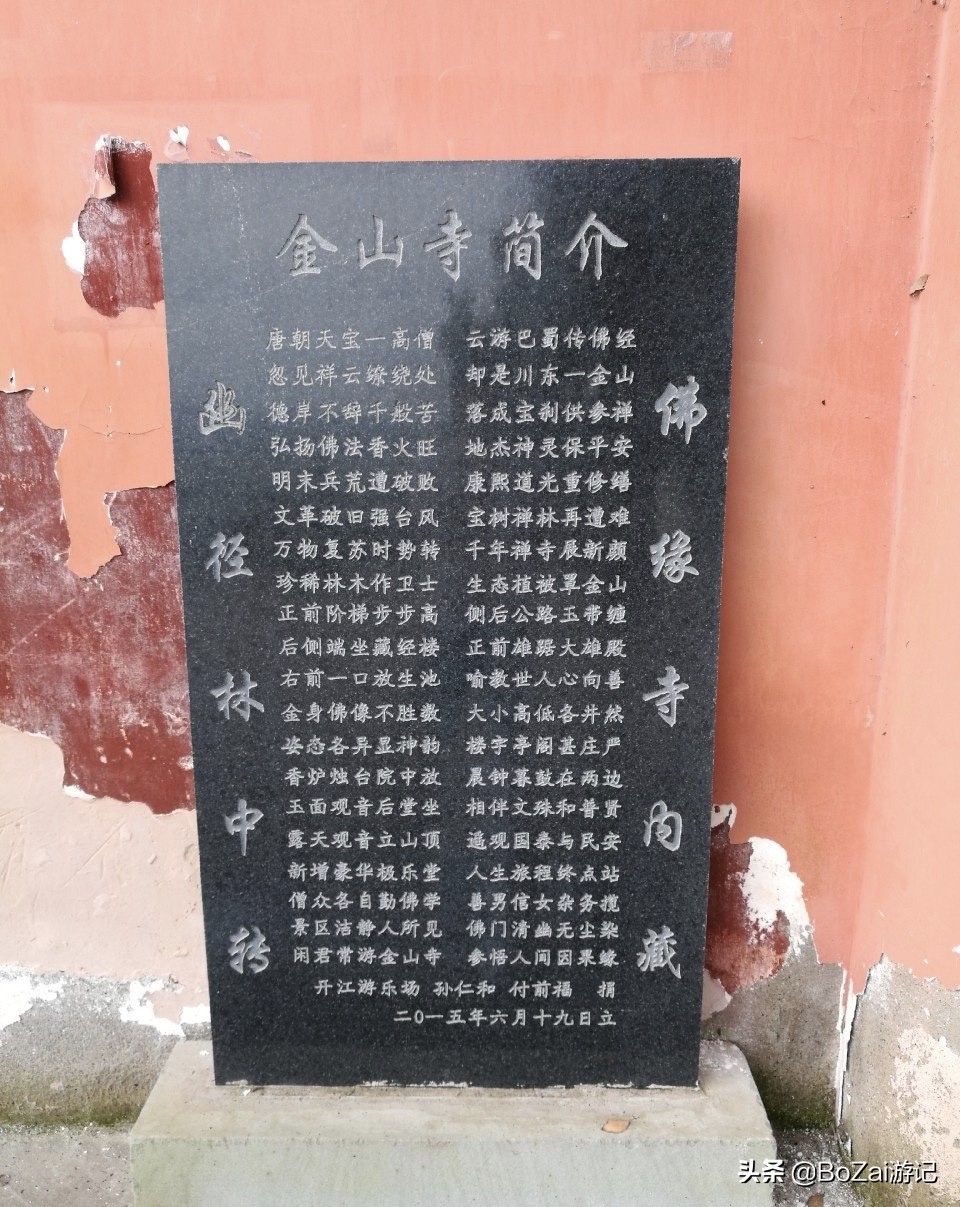 金山寺简介
佛缘寺内藏
幽径林中转
唐朝天宝一高僧 云游巴蜀传佛经
忽见祥云缭绕处 却是川东一金山
德岸不辞千般苦 落成宝刹供参禅
弘扬佛法香火旺 地杰神灵保平安
明末兵荒遭破败 康熙道光重修缮
文革破旧强台风 宝树禅林再遭难
万物复苏时势转 千年禅寺展新颜
珍稀林木作卫士 生态植被罩金山
正前阶梯步步高 侧后公路玉带缠
后侧端坐藏经楼 正前雄踞大雄殿
右前一口放生池 喻教世人心向善
金身佛像不胜数 大小高低各井然
姿态各异显神韵 楼宇亭阁甚庄严
香炉烛台院中放 晨钟暮鼓在两边
玉面观音后堂坐 相伴文殊和普贤
露天观音立山顶 遥观国泰与民安
新增豪华极乐堂 人生旅程终点站
僧众各自勤佛学 善男信女杂务揽
景区洁静人所见 佛门清幽无尘染
闲君常游金山寺 参悟人间因果缘
开江游乐场 孙仁和 付前福 捐
二0一五年六月十九日立
头条 @BoZai游记